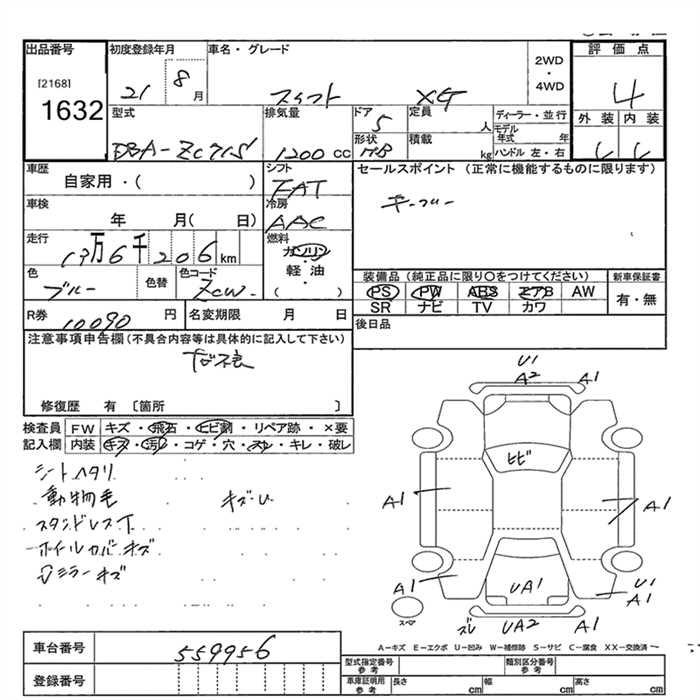 出品番号 初度登録年月 車名・グレード 2WD ・ 4WD 評価点
[2168] 1632 21 8月 スイフト XG 4
型式 排気量 ドア 定員 ディーラー・並行 外装 内装
DBA-ZC71S 1200 cc 5 人 モデル年式 年
形状 HB 積載 kg ハンドル 左・右
車歴 自家用・( ) シフト FAT セールスポイント (正常に機能するものに限ります)
車検 年 月( 日) 冷房 AAC キーフリー
走行 13万6千206km 燃料 ガソリン・軽油・( )
色 ブルー 色替 色コード ZCW-
装備品 (純正品に限り○をつけてください) 新車保証書
PS PW ABS エアB AW 有・無
SR ナビ TV カワ
R券 10090 円 名変期限 月 日 後日品
注意事項申告欄(不具合内容等は具体的に記入して下さい)
修復歴 有 [箇所 ]
検査員 FW キズ・飛石・ヒビ割・リペア跡・×要
記入欄 内装 キズ・汚レ・コゲ・穴・スレ・キレ・破レ
シートヘタリ
動物毛 キズ・U
スタンドレス下
ホイルカバーキズ
Dミラーキズ
U1
A1 A2 A1
ヒビ
A1 A1
A1 UA1 U1 A1
スペア ズレ UA2 A1
A-キズ E-エクボ U-凹み W-補修跡 S-サビ C-腐食 XX-交換済
車台番号 559956
登録番号
型式指定番号 参考 類別区分番号 参考
車庫証明用 参考 長さ cm 幅 cm 高さ cm